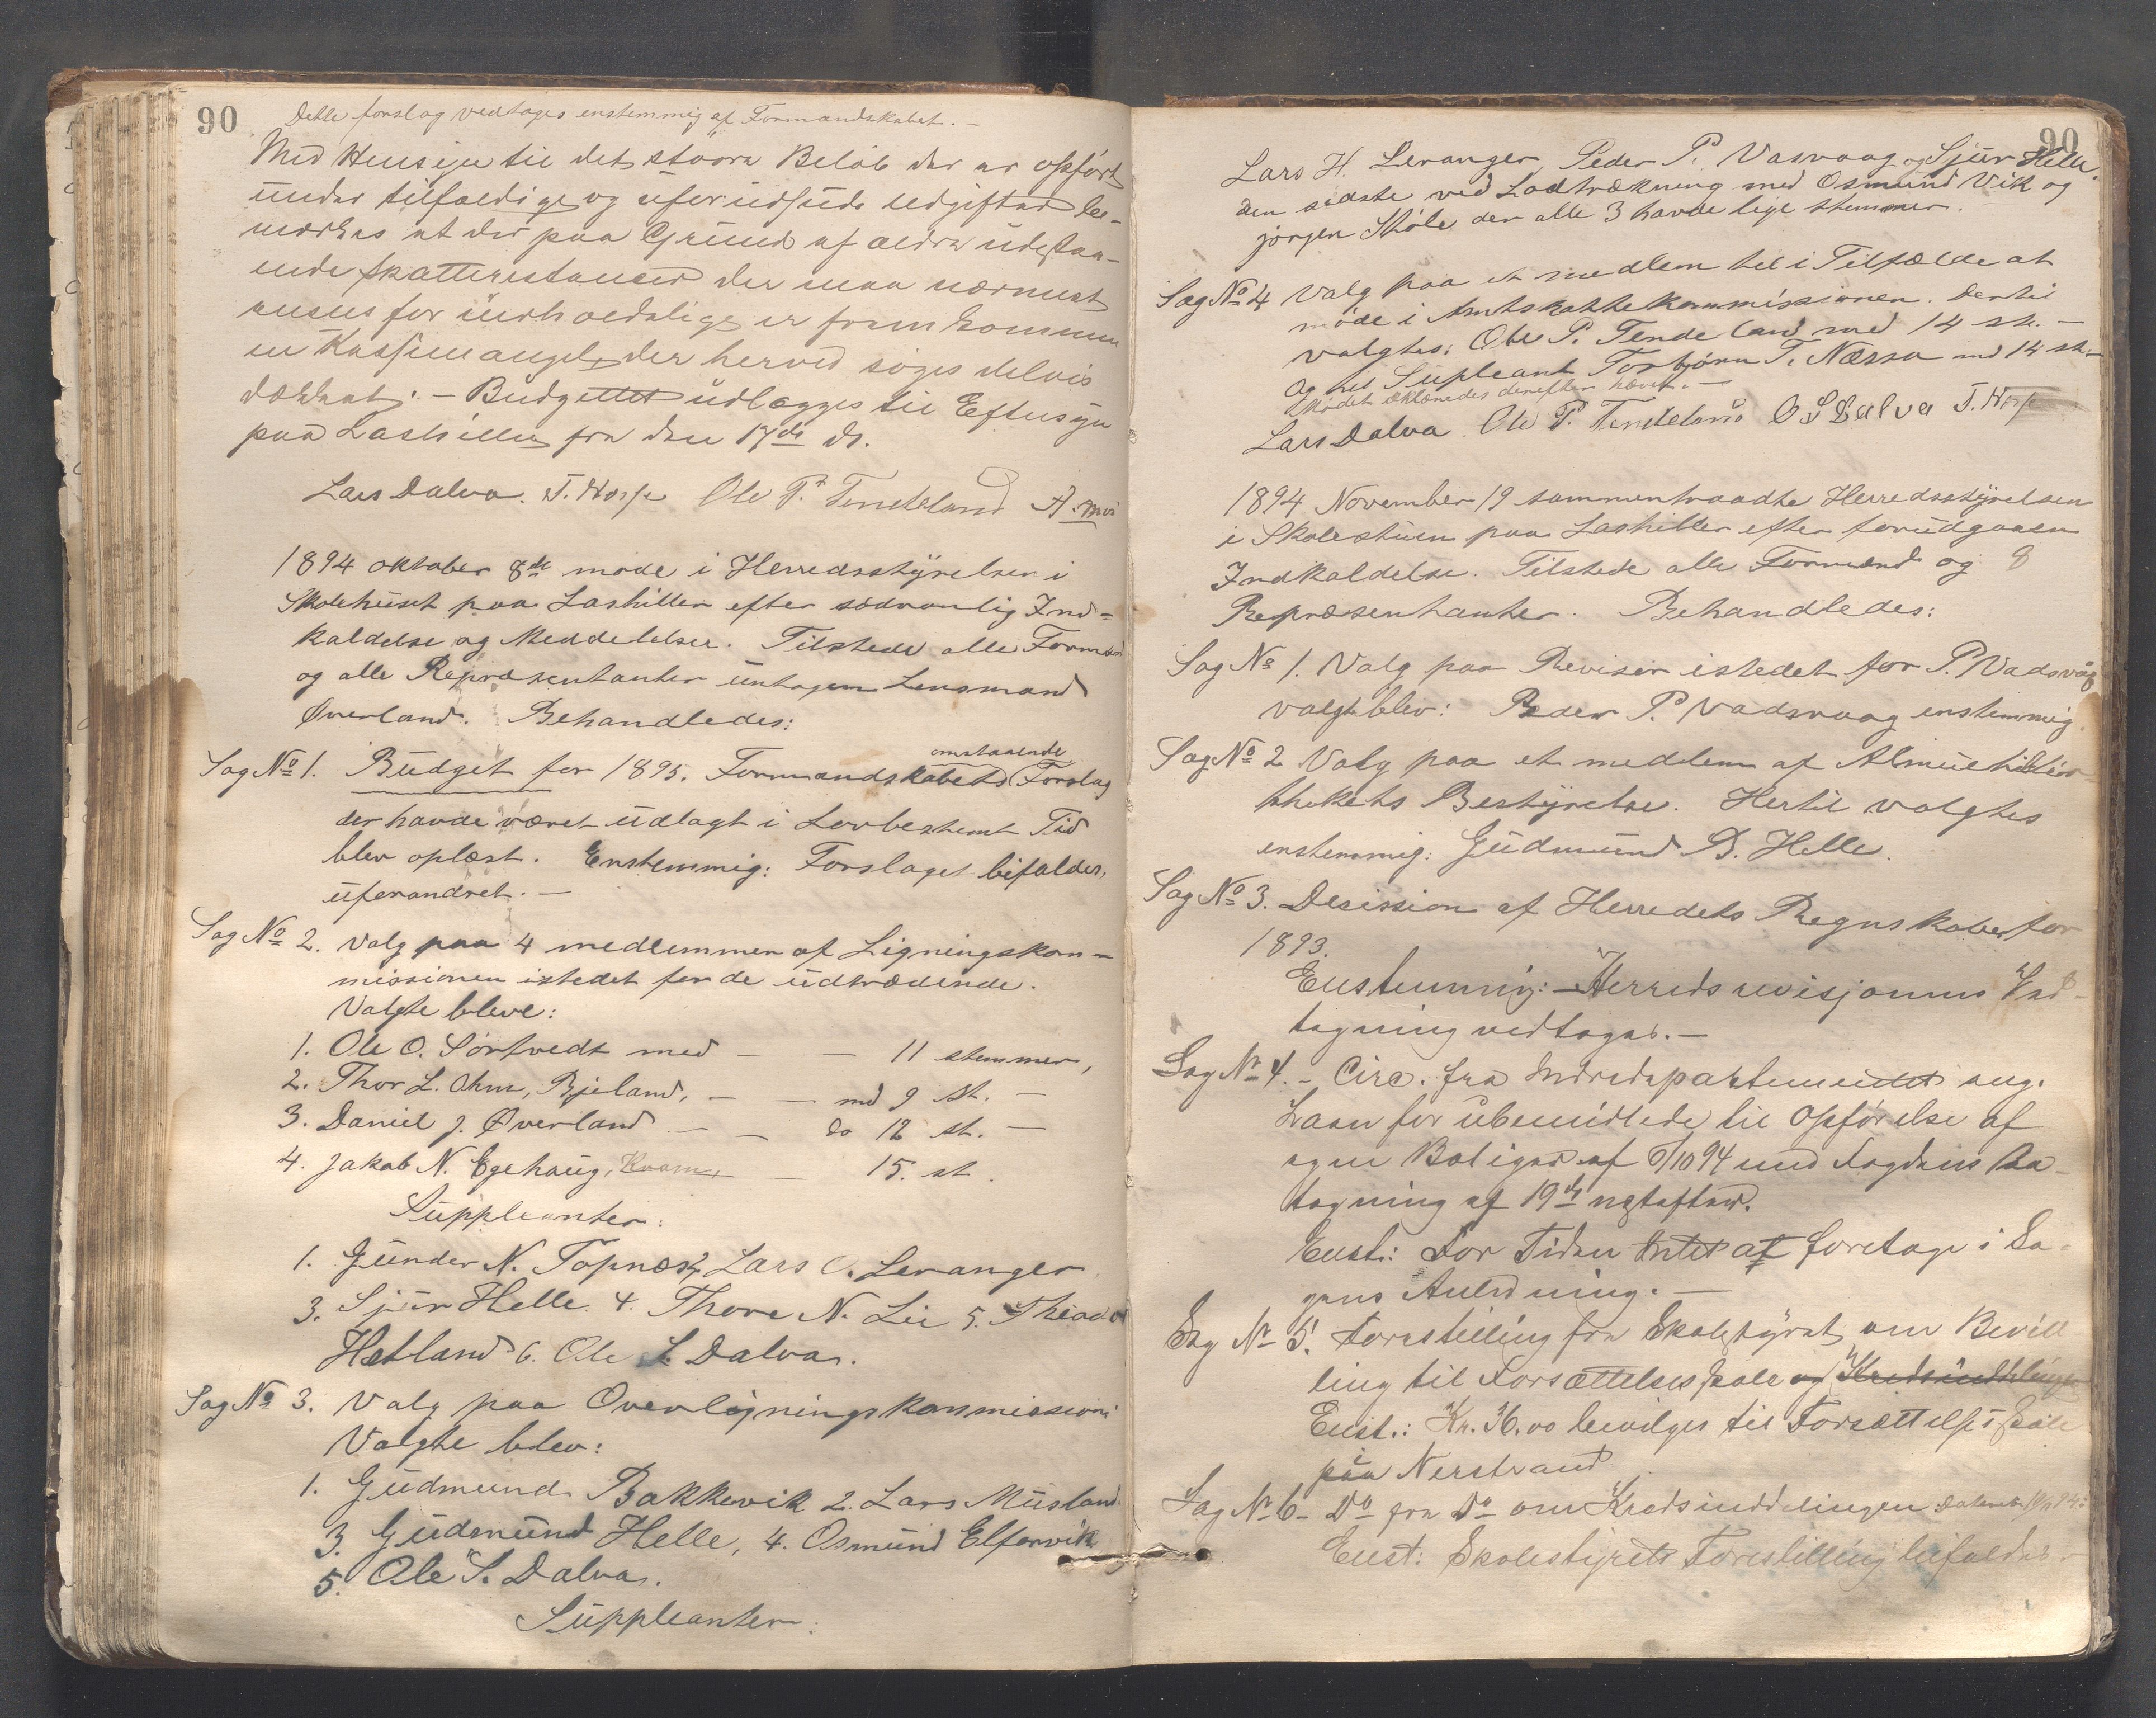 90
Dette forslag vedtages enstemmig af Formandskabet. —
Med Hensyn til det store Beløb der er opført
under tilfældige og uforudsede Udgifter be-
mærkes at der paa Grund af ældre udestaa-
ende Skatterestancer der maa nærmest
anses for uerholdelige er fremkommen
en Kassemangel, der herved søges delvis
dækket. — Budgettet udlægges til Eftersyn
paa Lashiller fra den 17de ds.
Lars Dalva. T. Norse Ole P. Tendeland
1894 oktober 8de møde i Herredsstyrelsen i
Skolehuset paa Lashiller efter sedvanlig Ind=
kaldelse og Meddelelser. Tilstede alle Formænd
og alle Repræsentanter untagen Lensmand
Øverland. Behandledes:
Sag No 1. Budget for 1895. Formandskabets omstaaende Forslag
der havde været udlagt i Lovbestemt Tid
blev oplæst. Enstemmig: Forslaget bifaldes,
uforandret. —
Sag No 2. Valg paa 4 medlemmer af Ligningskom-
missionen istedet for de udtrædende.
Valgte bleve:
1. Ole O. Sørtvedt med — — 11 stemmer,
2. Thor L. Ohm, Bjeland, — — md 9 st. —
3. Daniel J. Øverland — — do 12 st. —
4. Jakob N. Egehaug, Kvam, — 15. st.
Suppleanter:
1. Gunder N. Topnæs, 2. Lars O. Leranger
3. Sjur Helle. 4. Thore N. Lie 5. Theodor
Hetland 6. Ole S. Dalva.
Sag No 3. Valg paa Overligningskommission
Valgte blev:
1. Gudmund Bakkevik 2. Lars Musland
3. Gudmund Helle, 4. Osmund Elfarvik
5. Ole S. Dalva.
Suppleanter:
90
Lars H. Leranger, Peder P. Vasvaag og Sjur Helle.
den sidste ved Lodtrækning med Osmund Vik og
jørgen Skole der alle 3 havde lige stemmer.
Sag No 4 Valg paa et medlem til i Tilfælde at
møde i Amtskattekommissionen. Dertil
valgtes: Ole P. Tendeland med 14 st. —
og til Supleant Torbjørn T. Næssa md 14 st. —
Mødet erklæredes derefter hævet. —
Lars Dalva. Ole P. Tendeland O S Dalva T. Norse
1894 November 19 sammentraadte Herredsstyrelsen
i Skolestuen paa Lashiller efter forudgaaen
Indkaldelse. Tilstede alle Formænd og 8
Repræsentanter. Behandledes:
Sag No 1. Valg paa Revisor istedet for P. Vadsvåg
valgt blev: Peder P. Vadsvaag enstemmig.
Sag No 2 Valg paa et medlem af Almuebiblio-
thekets Bestyrelse. Hertil valgtes
enstemmig: Gudmund B. Helle.
Sag No 3. Desission af Herredets Regnskaber for
1893.
Enstemmig: Herredsrevisjonens Ved-
tagning vedtages. —
Sag No 4. — Circ. fra Indredepartementet ang.
Laan for ubemidlede til Opførelse af
egne Boliger af 6/10 94 med Fogdens Pa-
tegning af 19de næstefter.
Enst: For Tiden Intet at foretage i Sa-
gens Anledning. —
Sag No 5. Forestilling fra Skolestyret om Bevill
ling til Forsættelsesskole og Kredsinddelingen
Enst.: Kr. 36.00 bevilges til Forsættelsesskole
paa Nerstrand
Sag No 6 — Do fra Do om Kredsinddelingen
Enst: Skolestyrets Forestilling bifaldes —